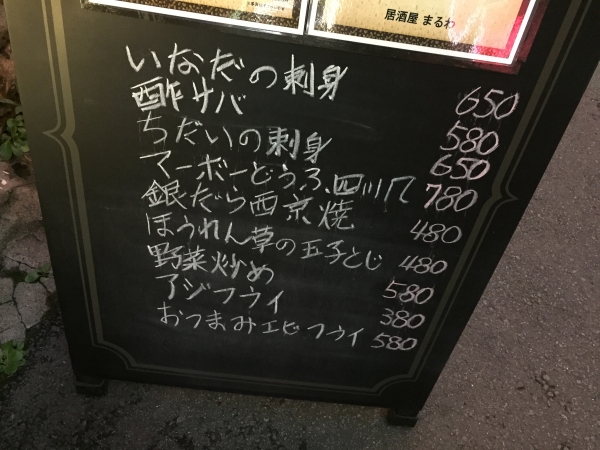 居酒屋 まるわ
いなだの刺身 650
酢サバ 580
ちだいの刺身 650
マーボーどうふ 四川 780
銀だら西京焼 480
ほうれん草の玉子とじ 480
野菜炒め 580
アジフライ 380
おつまみエビフライ 580